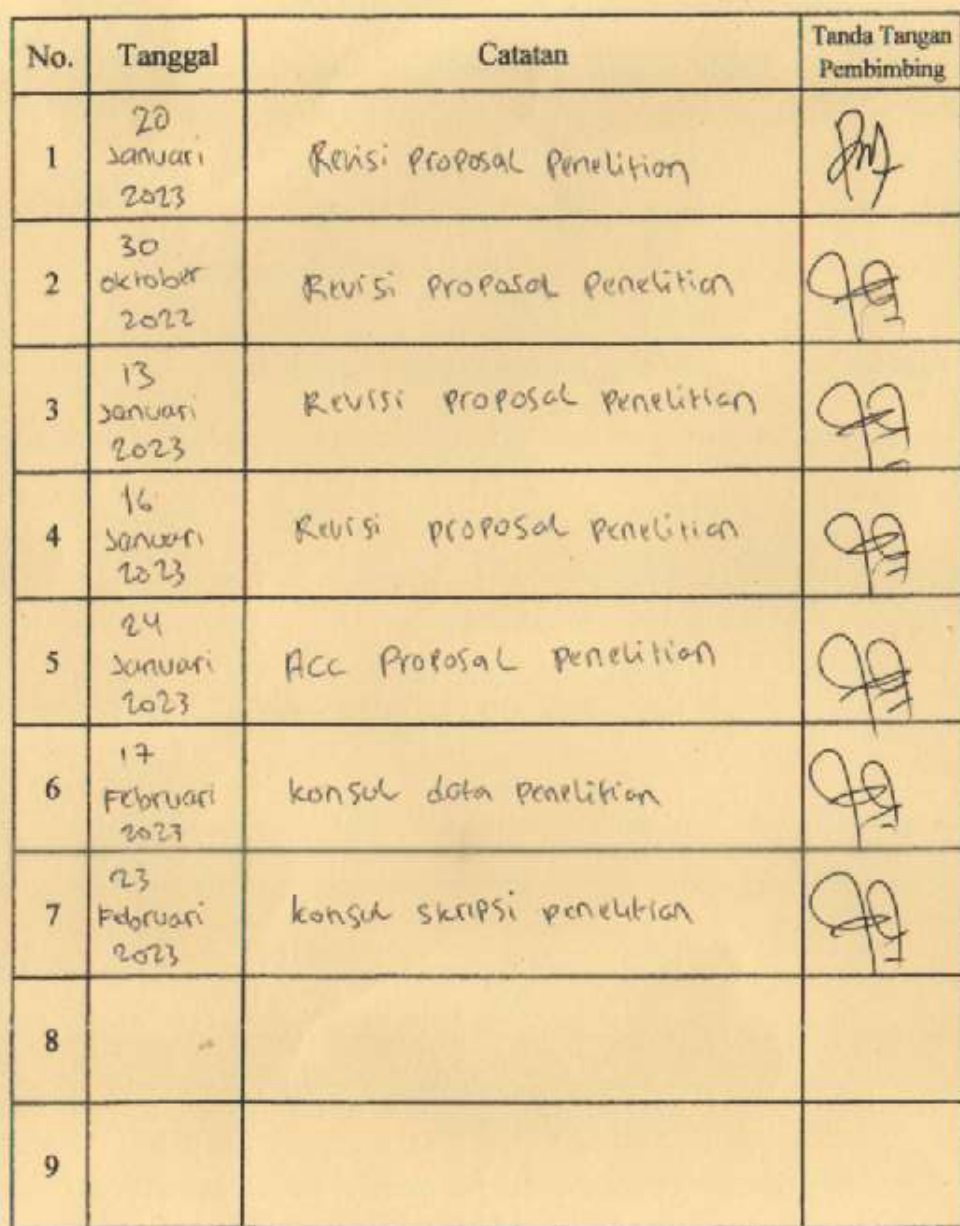 No. Tanggal Catatan Tanda Tangan
Pembimbing
1 20
Januari
2023 Revisi proposal penelitian
2 30
oktober
2022 Revisi proposal penelitian
3 13
Januari
2023 Revisi proposal penelitian
4 16
Januari
2023 Revisi proposal penelitian
5 24
Januari
2023 ACC Proposal penelitian
6 17
Februari
2023 konsul data penelitian
7 23
Februari
2023 konsul skripsi penelitian
8
9